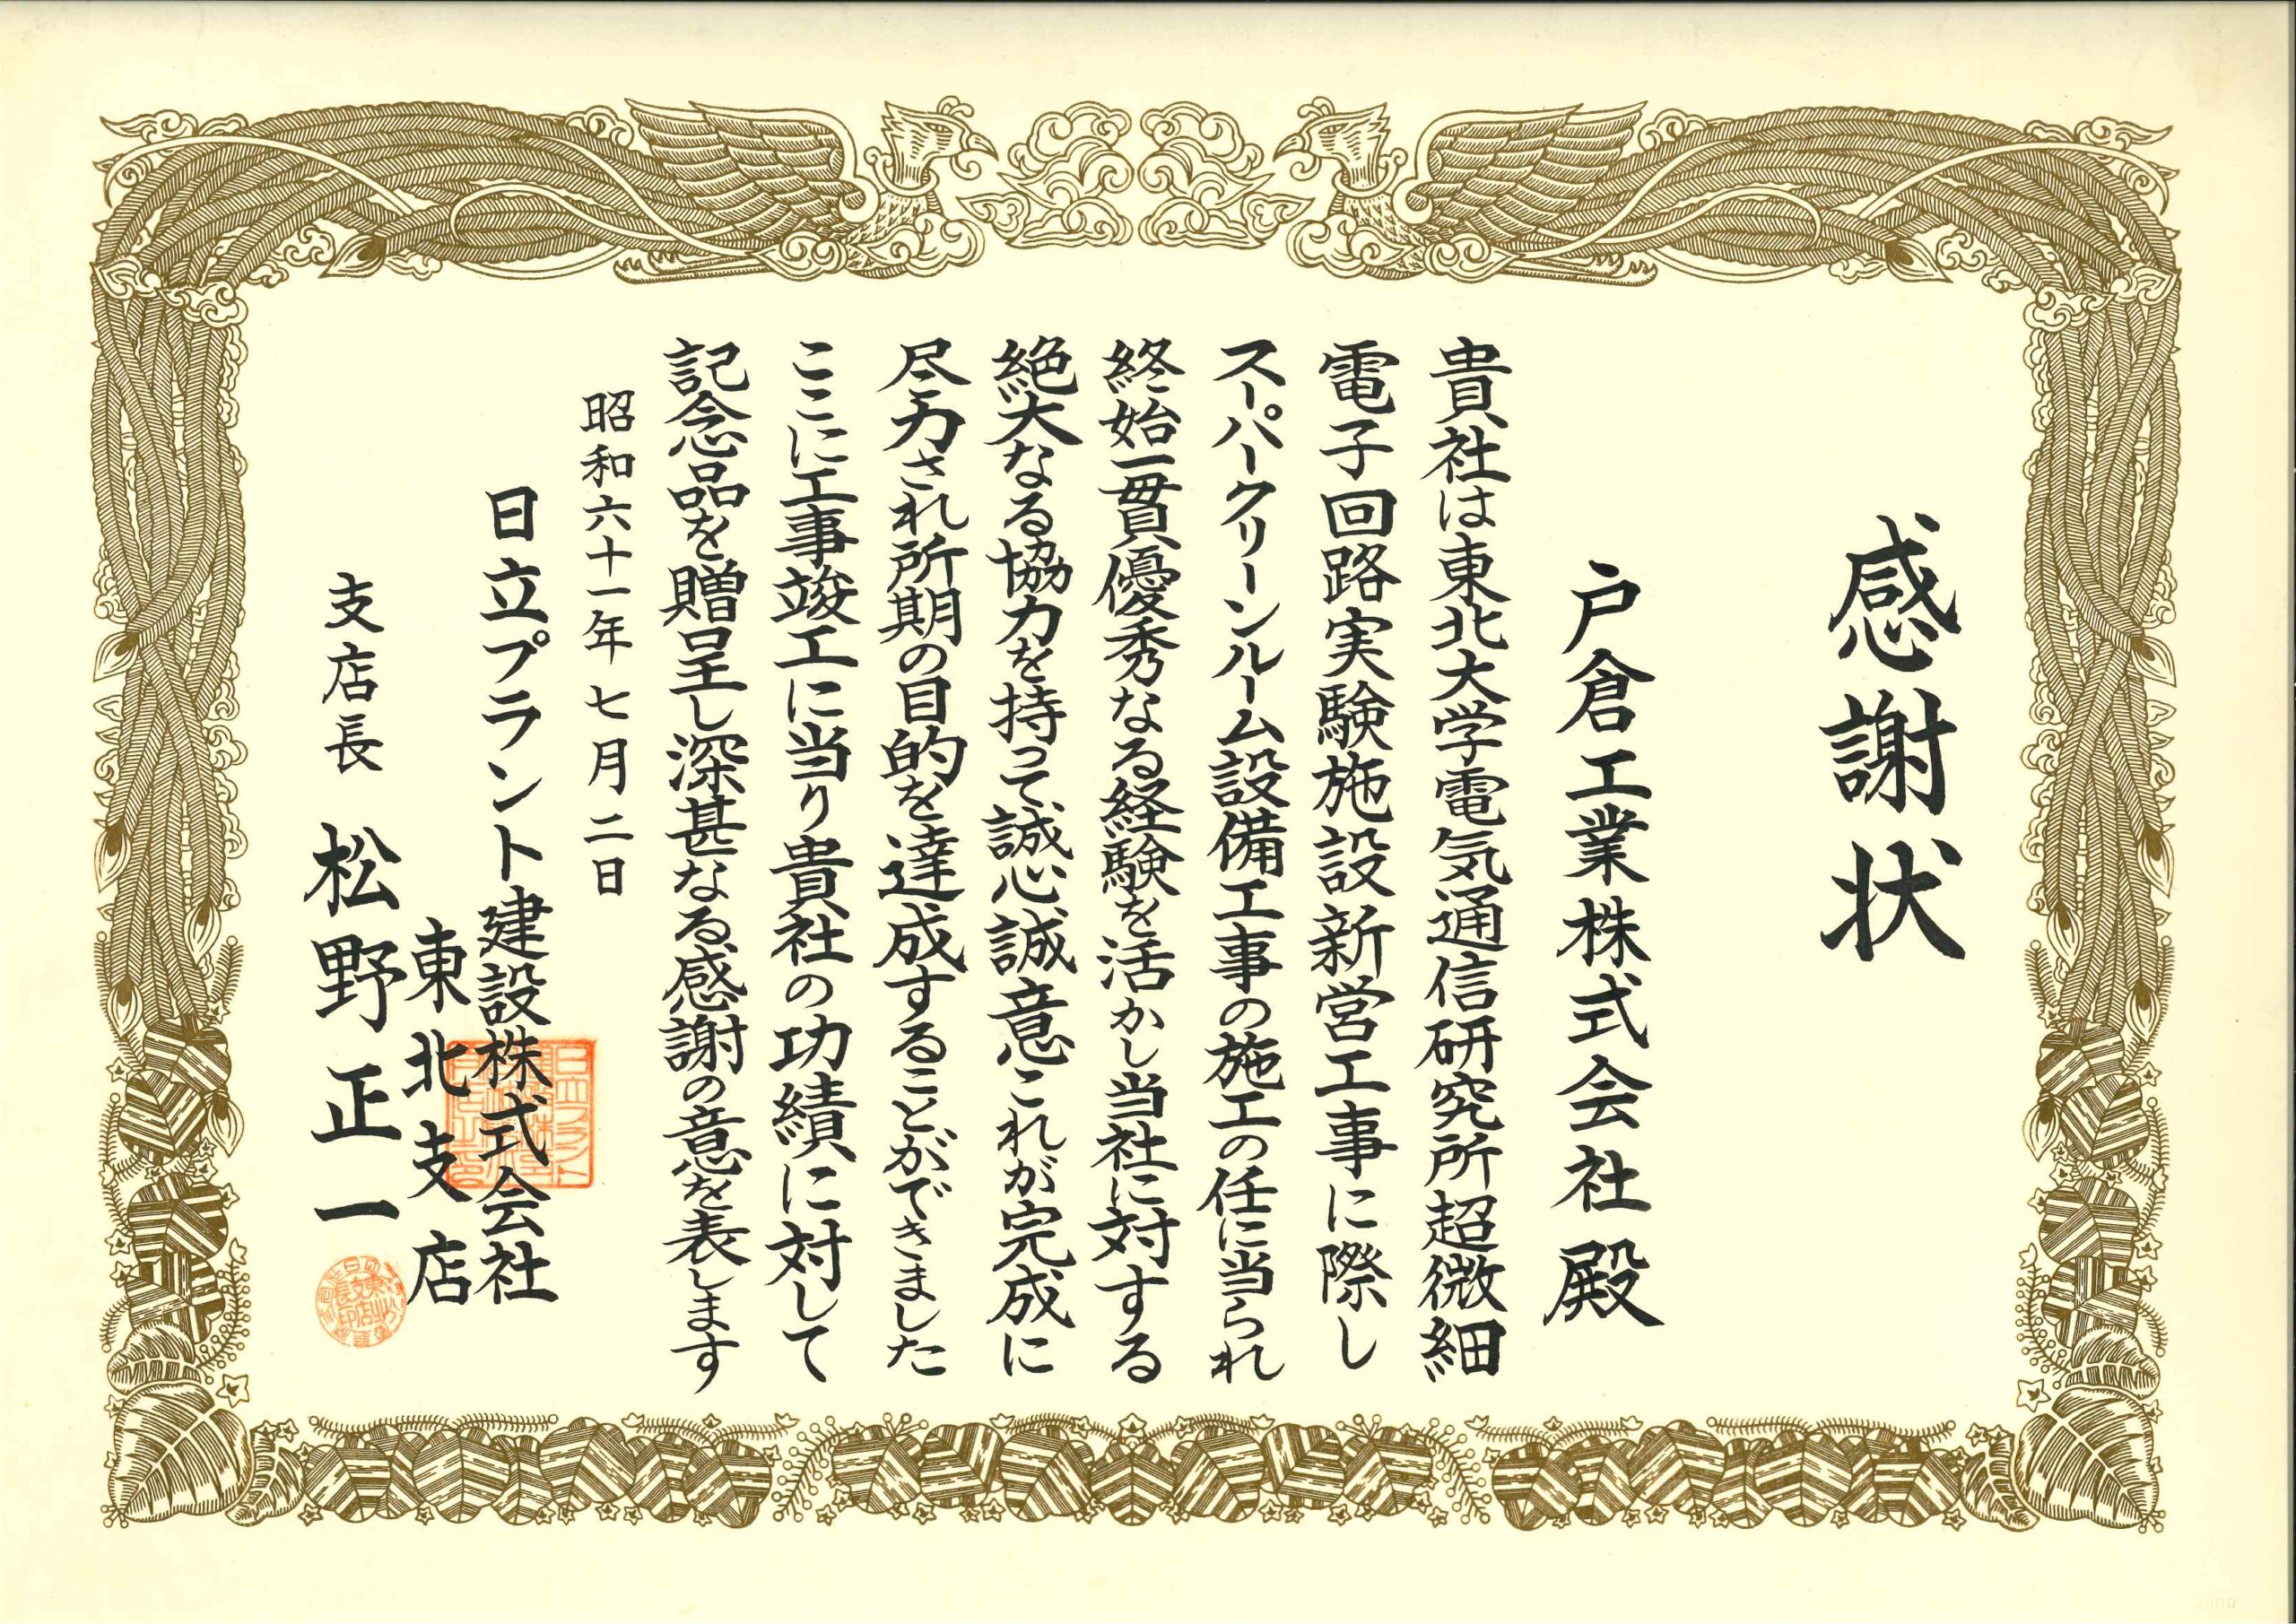 感謝状
戸倉工業株式会社殿
貴社は東北大学電気通信研究所超微細
電子回路実験施設新営工事に際し
スーパークリーンルーム設備工事の施工の任に当られ
終始一貫優秀なる経験を活かし当社に対する
絶大なる協力を持って誠心誠意これが完成に
尽力され所期の目的を達成することができました
ここに工事竣工に当り貴社の功績に対して
記念品を贈呈し深甚なる感謝の意を表します
昭和六十一年七月二日
日立プラント建設株式会社
東北支店
支店長 松野正一